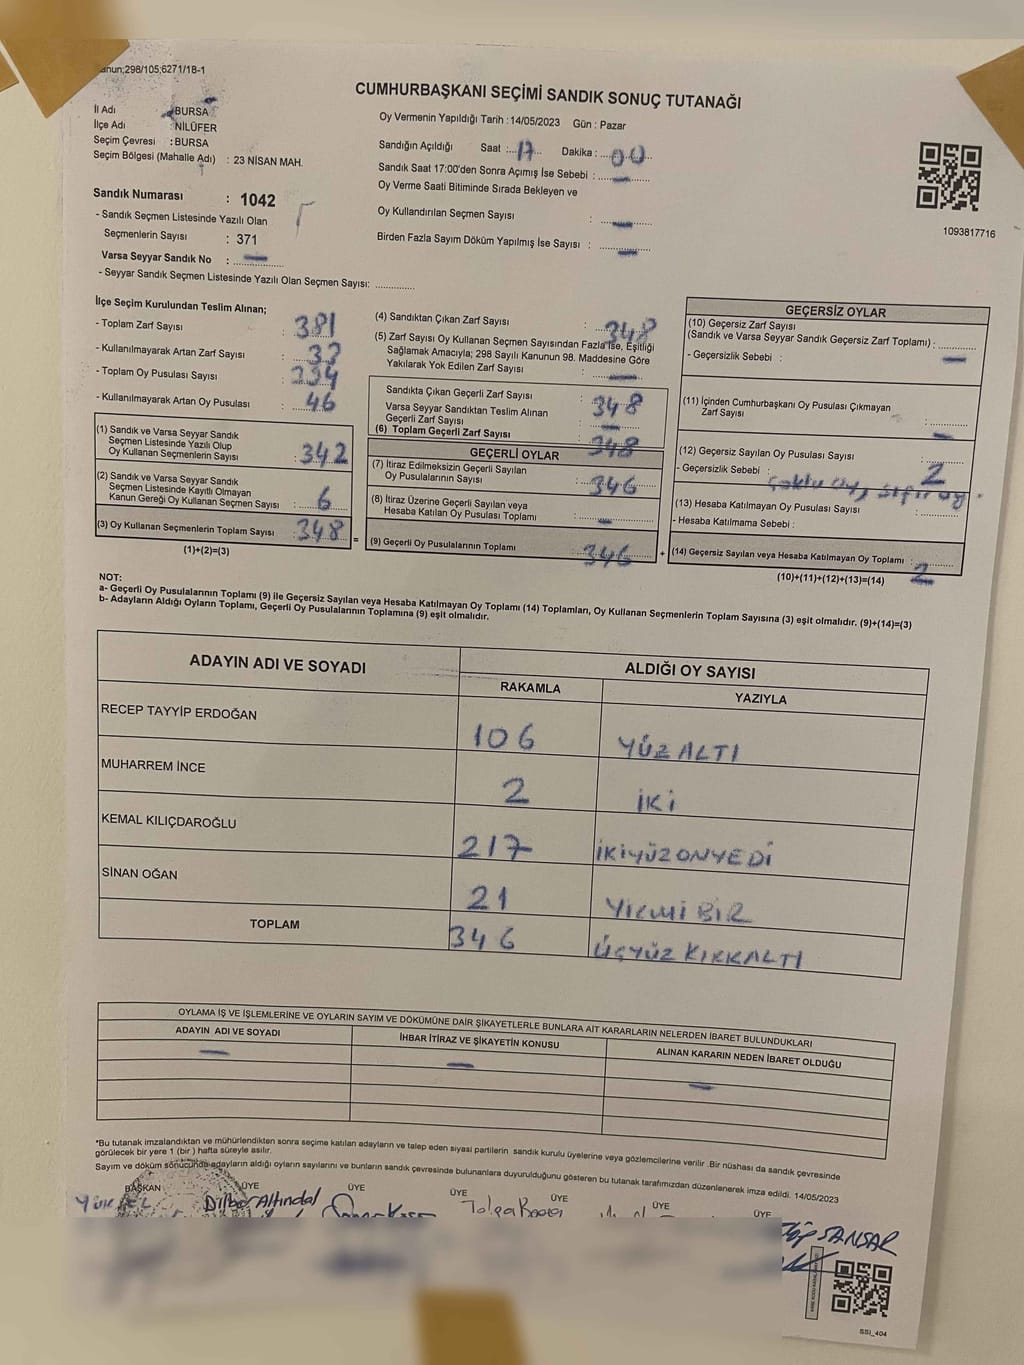 anun;298/105;6271/1B-1
CUMHURBAŞKANI SEÇİMİ SANDIK SONUÇ TUTANAĞI
İl Adı BURSA
İlçe Adı NİLÜFER
Seçim Çevresi : BURSA
Seçim Bölgesi (Mahalle Adı) : 23 NİSAN MAH.
Oy Vermenin Yapıldığı Tarih : 14/05/2023 Gün : Pazar
Sandığın Açıldığı Saat : 17 Dakika : 00
Sandık Saat 17:00'den Sonra Açımış İse Sebebi : —
Oy Verme Saati Bitiminde Sırada Bekleyen ve
Oy Kullandırılan Seçmen Sayısı : —
Birden Fazla Sayım Döküm Yapılmış İse Sayısı : —
1093817716
Sandık Numarası : 1042
- Sandık Seçmen Listesinde Yazılı Olan
Seçmenlerin Sayısı : 371
Varsa Seyyar Sandık No : —
- Seyyar Sandık Seçmen Listesinde Yazılı Olan Seçmen Sayısı: ..............
İlçe Seçim Kurulundan Teslim Alınan;
- Toplam Zarf Sayısı : 381
- Kullanılmayarak Artan Zarf Sayısı : 33
- Toplam Oy Pusulası Sayısı :
- Kullanılmayarak Artan Oy Pusulası : 46
(1) Sandık ve Varsa Seyyar Sandık
Seçmen Listesinde Yazılı Olup
Oy Kullanan Seçmenlerin Sayısı : 342
(2) Sandık ve Varsa Seyyar Sandık
Seçmen Listesinde Kayıtlı Olmayan
Kanun Gereği Oy Kullanan Seçmen Sayısı : 6
(3) Oy Kullanan Seçmenlerin Toplam Sayısı : 348 =
(1)+(2)=(3)
(4) Sandıktan Çıkan Zarf Sayısı : 348
(5) Zarf Sayısı Oy Kullanan Seçmen Sayısından Fazla İse, Eşitliği
Sağlamak Amacıyla; 298 Sayılı Kanunun 98. Maddesine Göre
Yakılarak Yok Edilen Zarf Sayısı : —
Sandıkta Çıkan Geçerli Zarf Sayısı : 348
Varsa Seyyar Sandıktan Teslim Alınan
Geçerli Zarf Sayısı : —
(6) Toplam Geçerli Zarf Sayısı : 348
GEÇERLİ OYLAR
(7) İtiraz Edilmeksizin Geçerli Sayılan
Oy Pusulalarının Sayısı : 346
(8) İtiraz Üzerine Geçerli Sayılan veya
Hesaba Katılan Oy Pusulası Toplamı : —
(9) Geçerli Oy Pusulalarının Toplamı : 346 +
GEÇERSİZ OYLAR
(10) Geçersiz Zarf Sayısı
(Sandık ve Varsa Seyyar Sandık Geçersiz Zarf Toplamı) : —
- Geçersizlik Sebebi :
(11) İçinden Cumhurbaşkanı Oy Pusulası Çıkmayan
Zarf Sayısı : —
(12) Geçersiz Sayılan Oy Pusulası Sayısı : 2
- Geçersizlik Sebebi : çoklu oy, sıfır oy
(13) Hesaba Katılmayan Oy Pusulası Sayısı :
- Hesaba Katılmama Sebebi :
(14) Geçersiz Sayılan veya Hesaba Katılmayan Oy Toplamı : 2
(10)+(11)+(12)+(13)=(14)
NOT:
a- Geçerli Oy Pusulalarının Toplamı (9) ile Geçersiz Sayılan veya Hesaba Katılmayan Oy Toplamı (14) Toplamları, Oy Kullanan Seçmenlerin Toplam Sayısına (3) eşit olmalıdır. (9)+(14)=(3)
b- Adayların Aldığı Oyların Toplamı, Geçerli Oy Pusulalarının Toplamına (9) eşit olmalıdır.
ADAYIN ADI VE SOYADI ALDIĞI OY SAYISI
RAKAMLA YAZIYLA
RECEP TAYYİP ERDOĞAN 106 YÜZ ALTI
MUHARREM İNCE 2 İKİ
KEMAL KILIÇDAROĞLU 217 İKİYÜZONYEDİ
SİNAN OĞAN 21 YİRMİ BİR
TOPLAM 346 ÜÇYÜZ KIRKALTI
OYLAMA İŞ VE İŞLEMLERİNE VE OYLARIN SAYIM VE DÖKÜMÜNE DAİR ŞİKAYETLERLE BUNLARA AİT KARARLARIN NELERDEN İBARET BULUNDUKLARI
ADAYIN ADI VE SOYADI İHBAR İTİRAZ VE ŞİKAYETİN KONUSU ALINAN KARARIN NEDEN İBARET OLDUĞU
— — —
*Bu tutanak imzalandıktan ve mühürlendikten sonra seçime katılan adayların ve talep eden siyasi partilerin sandık kurulu üyelerine veya gözlemcilerine verilir .Bir nüshası da sandık çevresinde
görülecek bir yere 1 (bir ) hafta süreyle asılır.
Sayım ve döküm sonucunda adayların aldığı oyların sayılarını ve bunların sandık çevresinde bulunanlara duyurulduğunu gösteren bu tutanak tarafımızdan düzenlenerek imza edildi. 14/05/2023
BAŞKAN ÜYE ÜYE ÜYE ÜYE ÜYE ÜYE
Altındal Tolga SANSAR
SSI_404